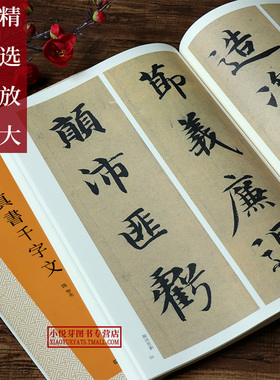 精选放大
造次
節義廉退
顛沛匪虧
真書千字文
小悦芽图书专营店
XIAOYUEYATS.TMALL.COM